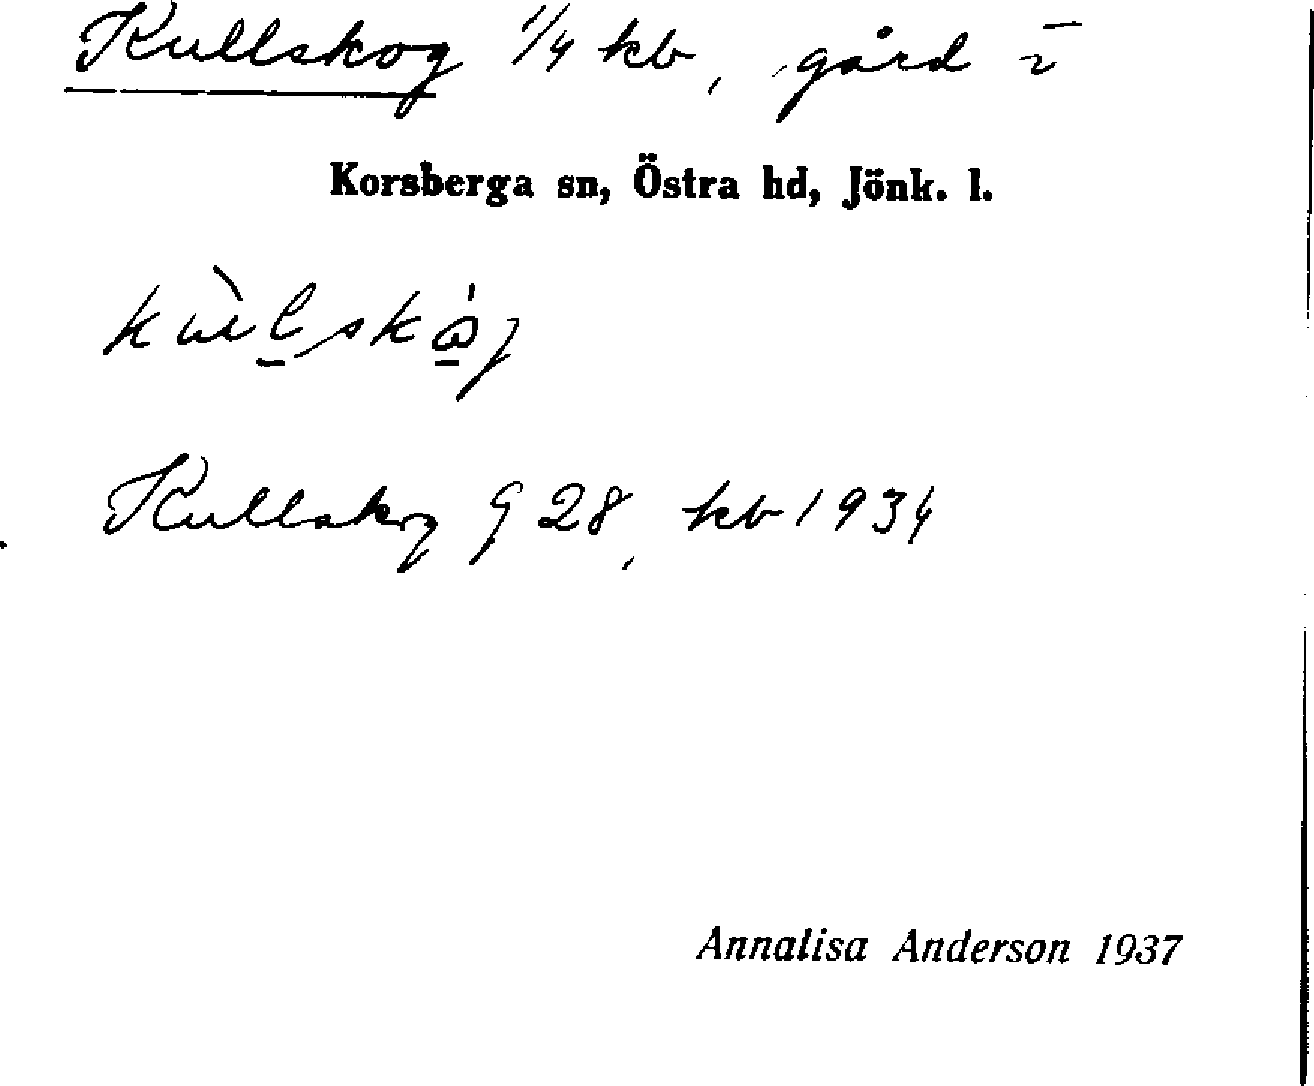 Kullskog 1/4 kb, gård i
Korsberga sn, Östra hd, Jönk. l.
Kullskog G 28, kb 1934
Annalisa Anderson 1937